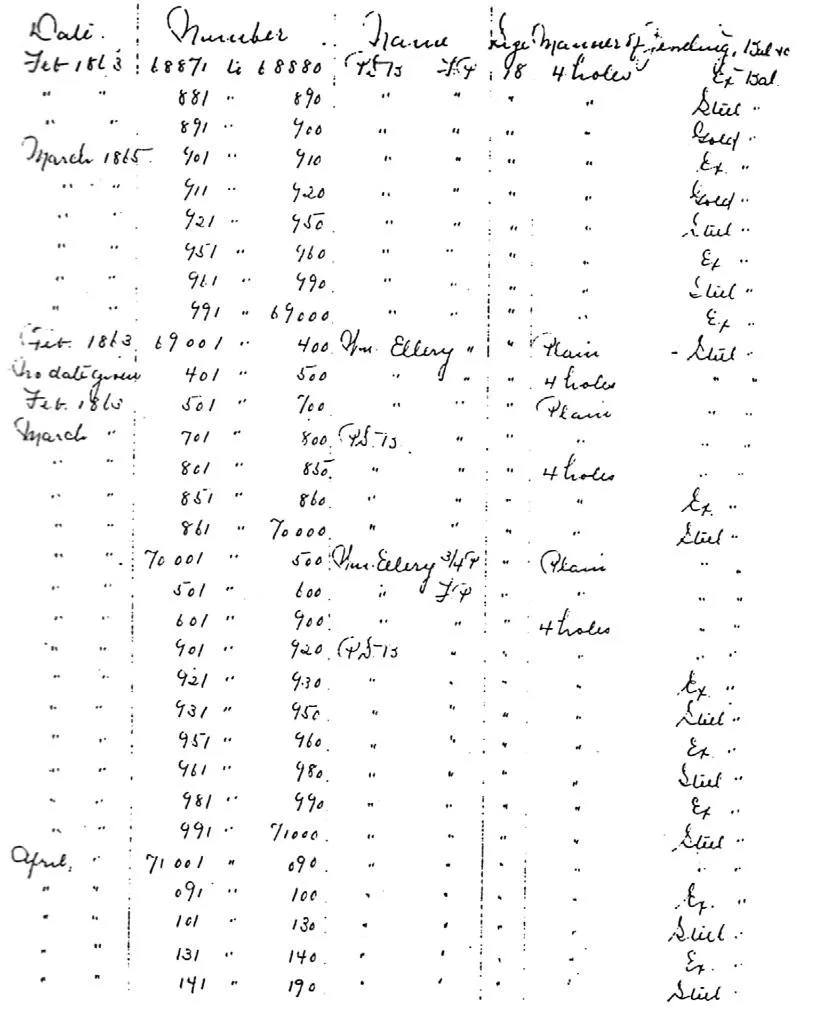 Date. Number Name Size Manner of Jeweling, Bal &c
Feb 1863 68871 to 68880 P.S.B F.P 18 4 holes Ex Bal.
" " 881 " 890 " " " " Steel "
" " 891 " 900 " " " " Gold "
March 1865. 901 " 910 " " " " Ex. "
" " 911 " 920 " " " " Gold "
" " 921 " 950 " " " " Steel "
" " 951 " 960 " " " " Ex "
" " 961 " 990 " " " " Steel "
" " 991 " 69000 " " " " Ex "
Feb. 1863 69001 " 400 Wm. Ellery " " Plain - Steel "
No date given 401 " 500 " " " 4 holes " "
Feb. 1863 501 " 700 " " " Plain " "
March " 701 " 800 P.S.B " " " " "
" " 801 " 850 " " " 4 holes " "
" " 851 " 860 " " " " Ex. "
" " 861 " 70000 " " " " Steel "
" " 70001 " 500 Wm. Ellery 3/4 P " Plain " "
" " 501 " 600 " F.P " " " "
" " 601 " 900 " " " 4 holes " "
" " 901 " 920 P.S.B " " " " "
" " 921 " 930 " " " " Ex. "
" " 931 " 950 " " " " Steel "
" " 951 " 960 " " " " Ex. "
" " 961 " 980 " " " " Steel "
" " 981 " 990 " " " " Ex "
" " 991 " 71000 " " " " Steel "
April, " 71001 " 090 " " " " " "
" " 091 " 100 " " " " Ex. "
" " 101 " 130 " " " " Steel "
" " 131 " 140 " " " " Ex. "
" " 141 " 190 " " " " Steel "